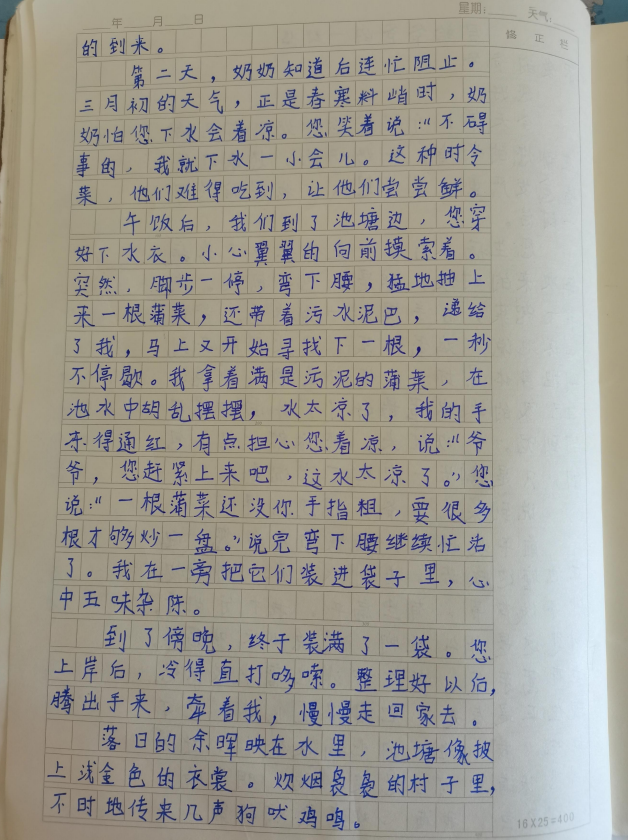 年 月 日 星期: 天气:
修正栏
的到来。
第二天，奶奶知道后连忙阻止。
三月初的天气，正是春寒料峭时，奶
奶怕您下水会着凉。您笑着说：“不碍
事的，我就下水一小会儿。这种时令
菜，他们难得吃到，让他们尝尝鲜。
午饭后，我们到了池塘边，您穿
好下水衣。小心翼翼的向前摸索着。
突然，脚步一停，弯下腰，猛地抽上
来一根蒲菜，还带着污水泥巴，递给
了我，马上又开始寻找下一根，一秒
不停歇。我拿着满是污泥的蒲菜，在
池水中胡乱摆摆，水太凉了，我的手
冻得通红，有点担心您着凉，说：“爷
爷，您赶紧上来吧，这水太凉了。”您
说：“一根蒲菜还没你手指粗，要很多
根才够炒一盘。”说完弯下腰继续忙活
了。我在一旁把它们装进袋子里，心
中五味杂陈。
到了傍晚，终于装满了一袋。您
上岸后，冷得直打哆嗦。整理好以后，
腾出手来，牵着我，慢慢走回家去。
落日的余晖映在水里，池塘像披
上浅金色的衣裳。炊烟袅袅的村子里，
不时地传来几声狗吠鸡鸣。
16X25=400